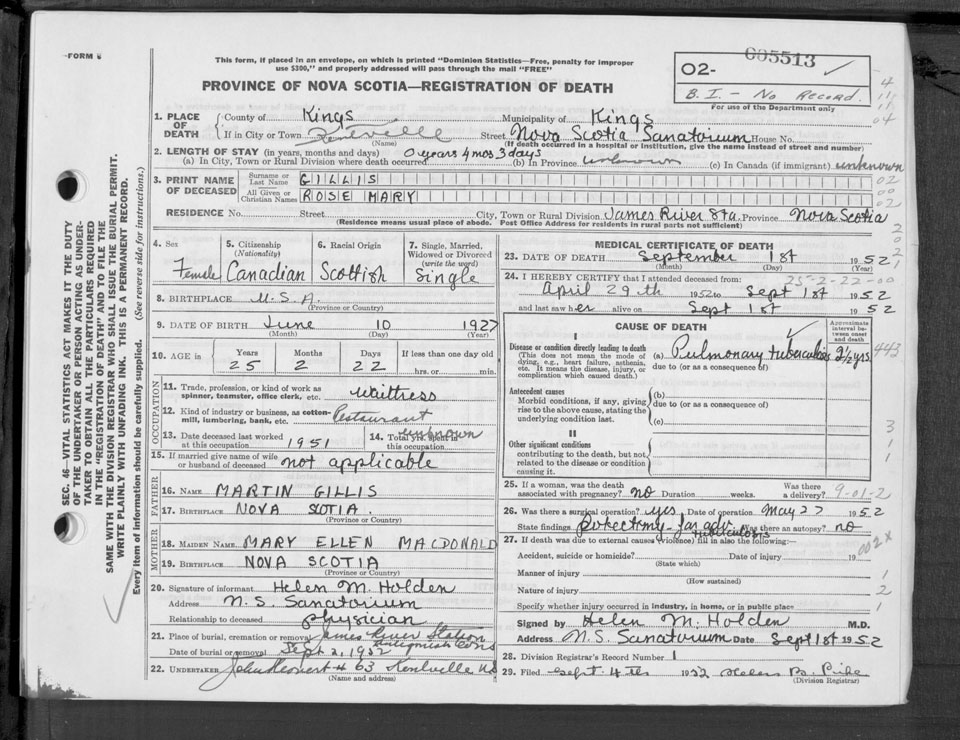 FORM 6
This form, if placed in an envelope, on which is printed "Dominion Statistics—Free, penalty for improper
use $300," and properly addressed will pass through the mail "FREE"
PROVINCE OF NOVA SCOTIA—REGISTRATION OF DEATH
005513
O2-
B. I. - No Record.
For use of the Department only
1. PLACE OF DEATH
County of Kings Municipality of Kings
If in City or Town Kentville Street Nova Scotia Sanatorium House No.
(Name) (If death occurred in a hospital or institution, give the name instead of street and number)
2. LENGTH OF STAY (in years, months and days) 0 years 4 mos 3 days
(a) In City, Town or Rural Division where death occurred (b) In Province unknown (c) In Canada (if immigrant) unknown
3. PRINT NAME OF DECEASED
Surname or Last Name GILLIS
All Given or Christian Names ROSE MARY
RESIDENCE No. Street City, Town or Rural Division James River Sta. Province Nova Scotia
(Residence means usual place of abode. Post Office Address for residents in rural parts not sufficient)
4. Sex Female
5. Citizenship (Nationality) Canadian
6. Racial Origin Scottish
7. Single, Married, Widowed or Divorced (write the word) Single
8. BIRTHPLACE U.S.A.
(Province or Country)
9. DATE OF BIRTH June 10 1927
(Month) (Day) (Year)
10. AGE in Years 25 Months 2 Days 22 If less than one day old hrs. or min.
OCCUPATION
11. Trade, profession, or kind of work as spinner, teamster, office clerk, etc. Waitress
12. Kind of industry or business, as cotton-mill, lumbering, bank, etc. Restaurant
13. Date deceased last worked at this occupation 1951
14. Total yrs. spent in this occupation unknown
15. If married give name of wife or husband of deceased not applicable
FATHER
16. NAME MARTIN GILLIS
17. BIRTHPLACE NOVA SCOTIA.
(Province or Country)
MOTHER
18. MAIDEN NAME MARY ELLEN MACDONALD
19. BIRTHPLACE NOVA SCOTIA
(Province or Country)
20. Signature of informant Helen M. Holden
Address N. S. Sanatorium
Relationship to deceased physician
21. Place of burial, cremation or removal James River Station
Antigonish Co NS
Date of burial or removal Sept 2, 1952
22. UNDERTAKER # 63 Kentville NS
(Name and address)
MEDICAL CERTIFICATE OF DEATH
23. DATE OF DEATH September 1st 1952
(Month) (Day) (Year)
24. I HEREBY CERTIFY that I attended deceased from:
25-2-22-00
April 29th 1952 to Sept 1st 1952
and last saw her alive on Sept 1st 1952
CAUSE OF DEATH
Approximate interval between onset and death
I
Disease or condition directly leading to death
(This does not mean the mode of dying, e.g., heart failure, asthenia, etc. It means the disease, injury, or complication which caused death.)
(a) Pulmonary tuberculosis 2½ yrs.
due to (or as a consequence of)
Antecedent causes
Morbid conditions, if any, giving rise to the above cause, stating the underlying condition last.
(b)
due to (or as a consequence of)
(c)
II
Other significant conditions
contributing to the death, but not related to the disease or condition causing it.
25. If a woman, was the death associated with pregnancy? no Duration weeks. Was there a delivery? 9-01-2
26. Was there a surgical operation? yes Date of operation May 27 1952
State findings tuberculosis Was there an autopsy? no
27. If death was due to external causes (violence) fill in also the following:—
002X
Accident, suicide or homicide? Date of injury 19
(State which)
Manner of injury
(How sustained)
Nature of injury
Specify whether injury occurred in industry, in home, or in public place
Signed by Helen M. Holden M.D.
Address N.S. Sanatorium Date Sept 1st 1952
28. Division Registrar's Record Number 1
29. Filed Sept. 4th 1952 Helen B. Pike
(Division Registrar)
SEC. 46—VITAL STATISTICS ACT MAKES IT THE DUTY
OF THE UNDERTAKER OR PERSON ACTING AS UNDER-
TAKER TO OBTAIN ALL THE PARTICULARS REQUIRED
IN THE "REGISTRATION OF DEATH" AND TO FILE THE
SAME WITH THE DIVISION REGISTRAR WHO SHALL ISSUE THE BURIAL PERMIT.
WRITE PLAINLY WITH UNFADING INK. THIS IS A PERMANENT RECORD.
Every item of Information should be carefully supplied. (See reverse side for instructions.)